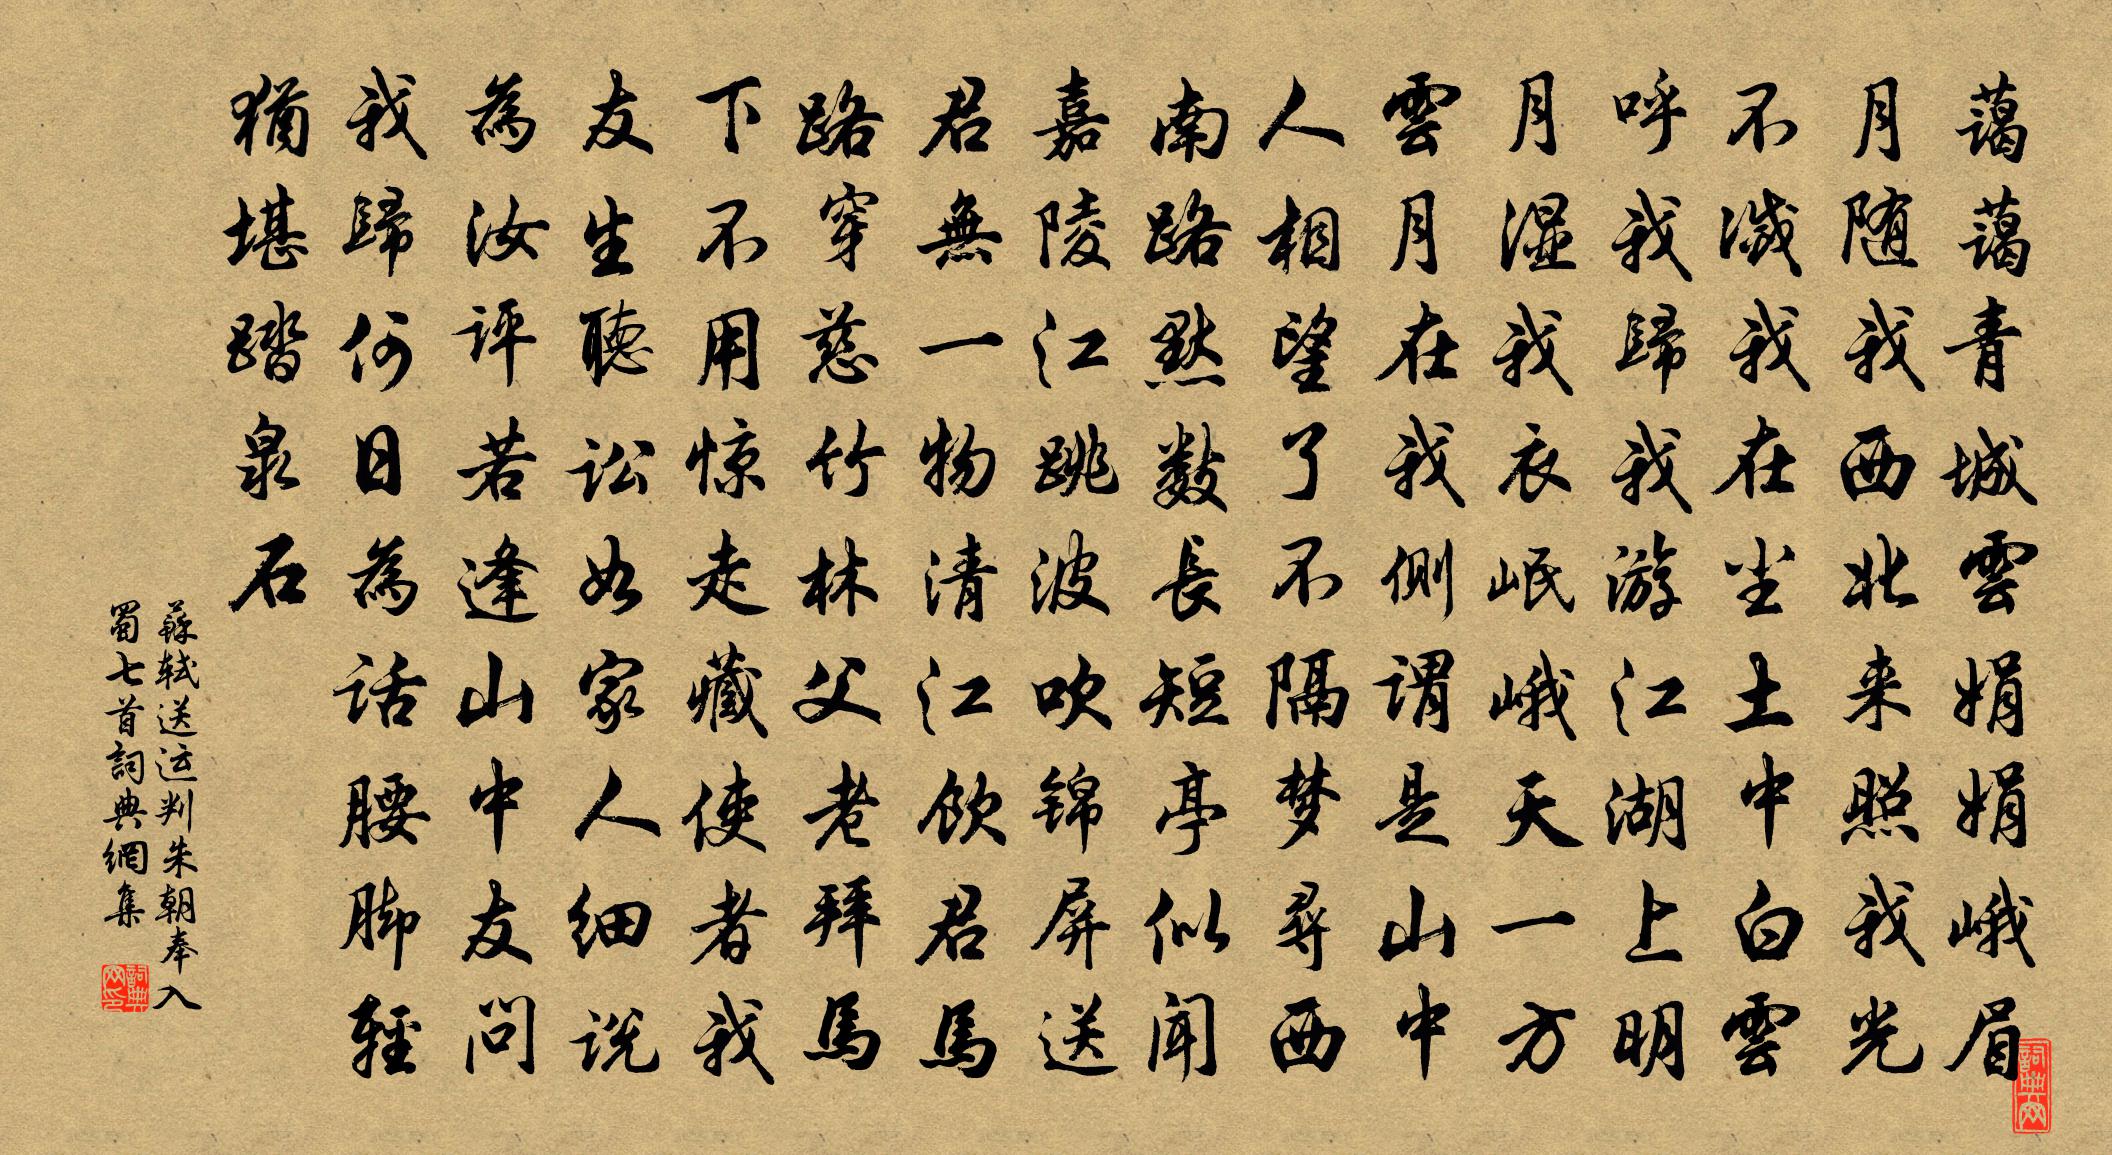 藹藹青城雲娟娟峨眉
月随我西北来照我光
不滅我在尘土中白雲
呼我歸我游江湖上明
月湿我衣岷峨天一方
雲月在我側謂是山中
人相望了不隔梦尋西
南路默数長短亭似闻
嘉陵江跳波吹锦屏送
君無一物清江飲君馬
路穿慈竹林父老拜馬
下不用惊走藏使者我
友生聴訟如家人細説
為汝评若逢山中友問
我歸何日為話腰脚輕
猶堪踏泉石
蘇軾送运判朱朝奉入
蜀七首詞典網集
詞典网印
詞典网